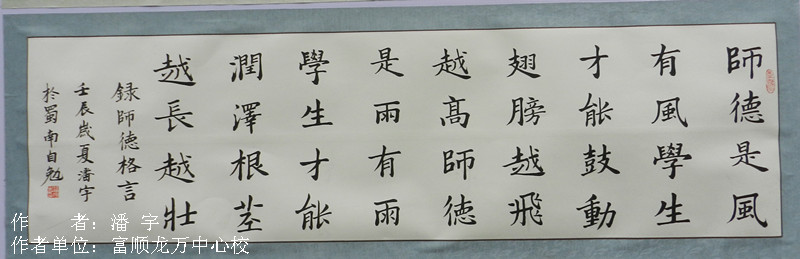 師德是風
有風學生
才能鼓動
翅膀越飛
越高師德
是雨有雨
學生才能
潤澤根莖
越長越壯
錄師德格言
壬辰歲夏潘宇
於蜀南自勉
作　　者：潘 宇
作者单位：富顺龙万中心校